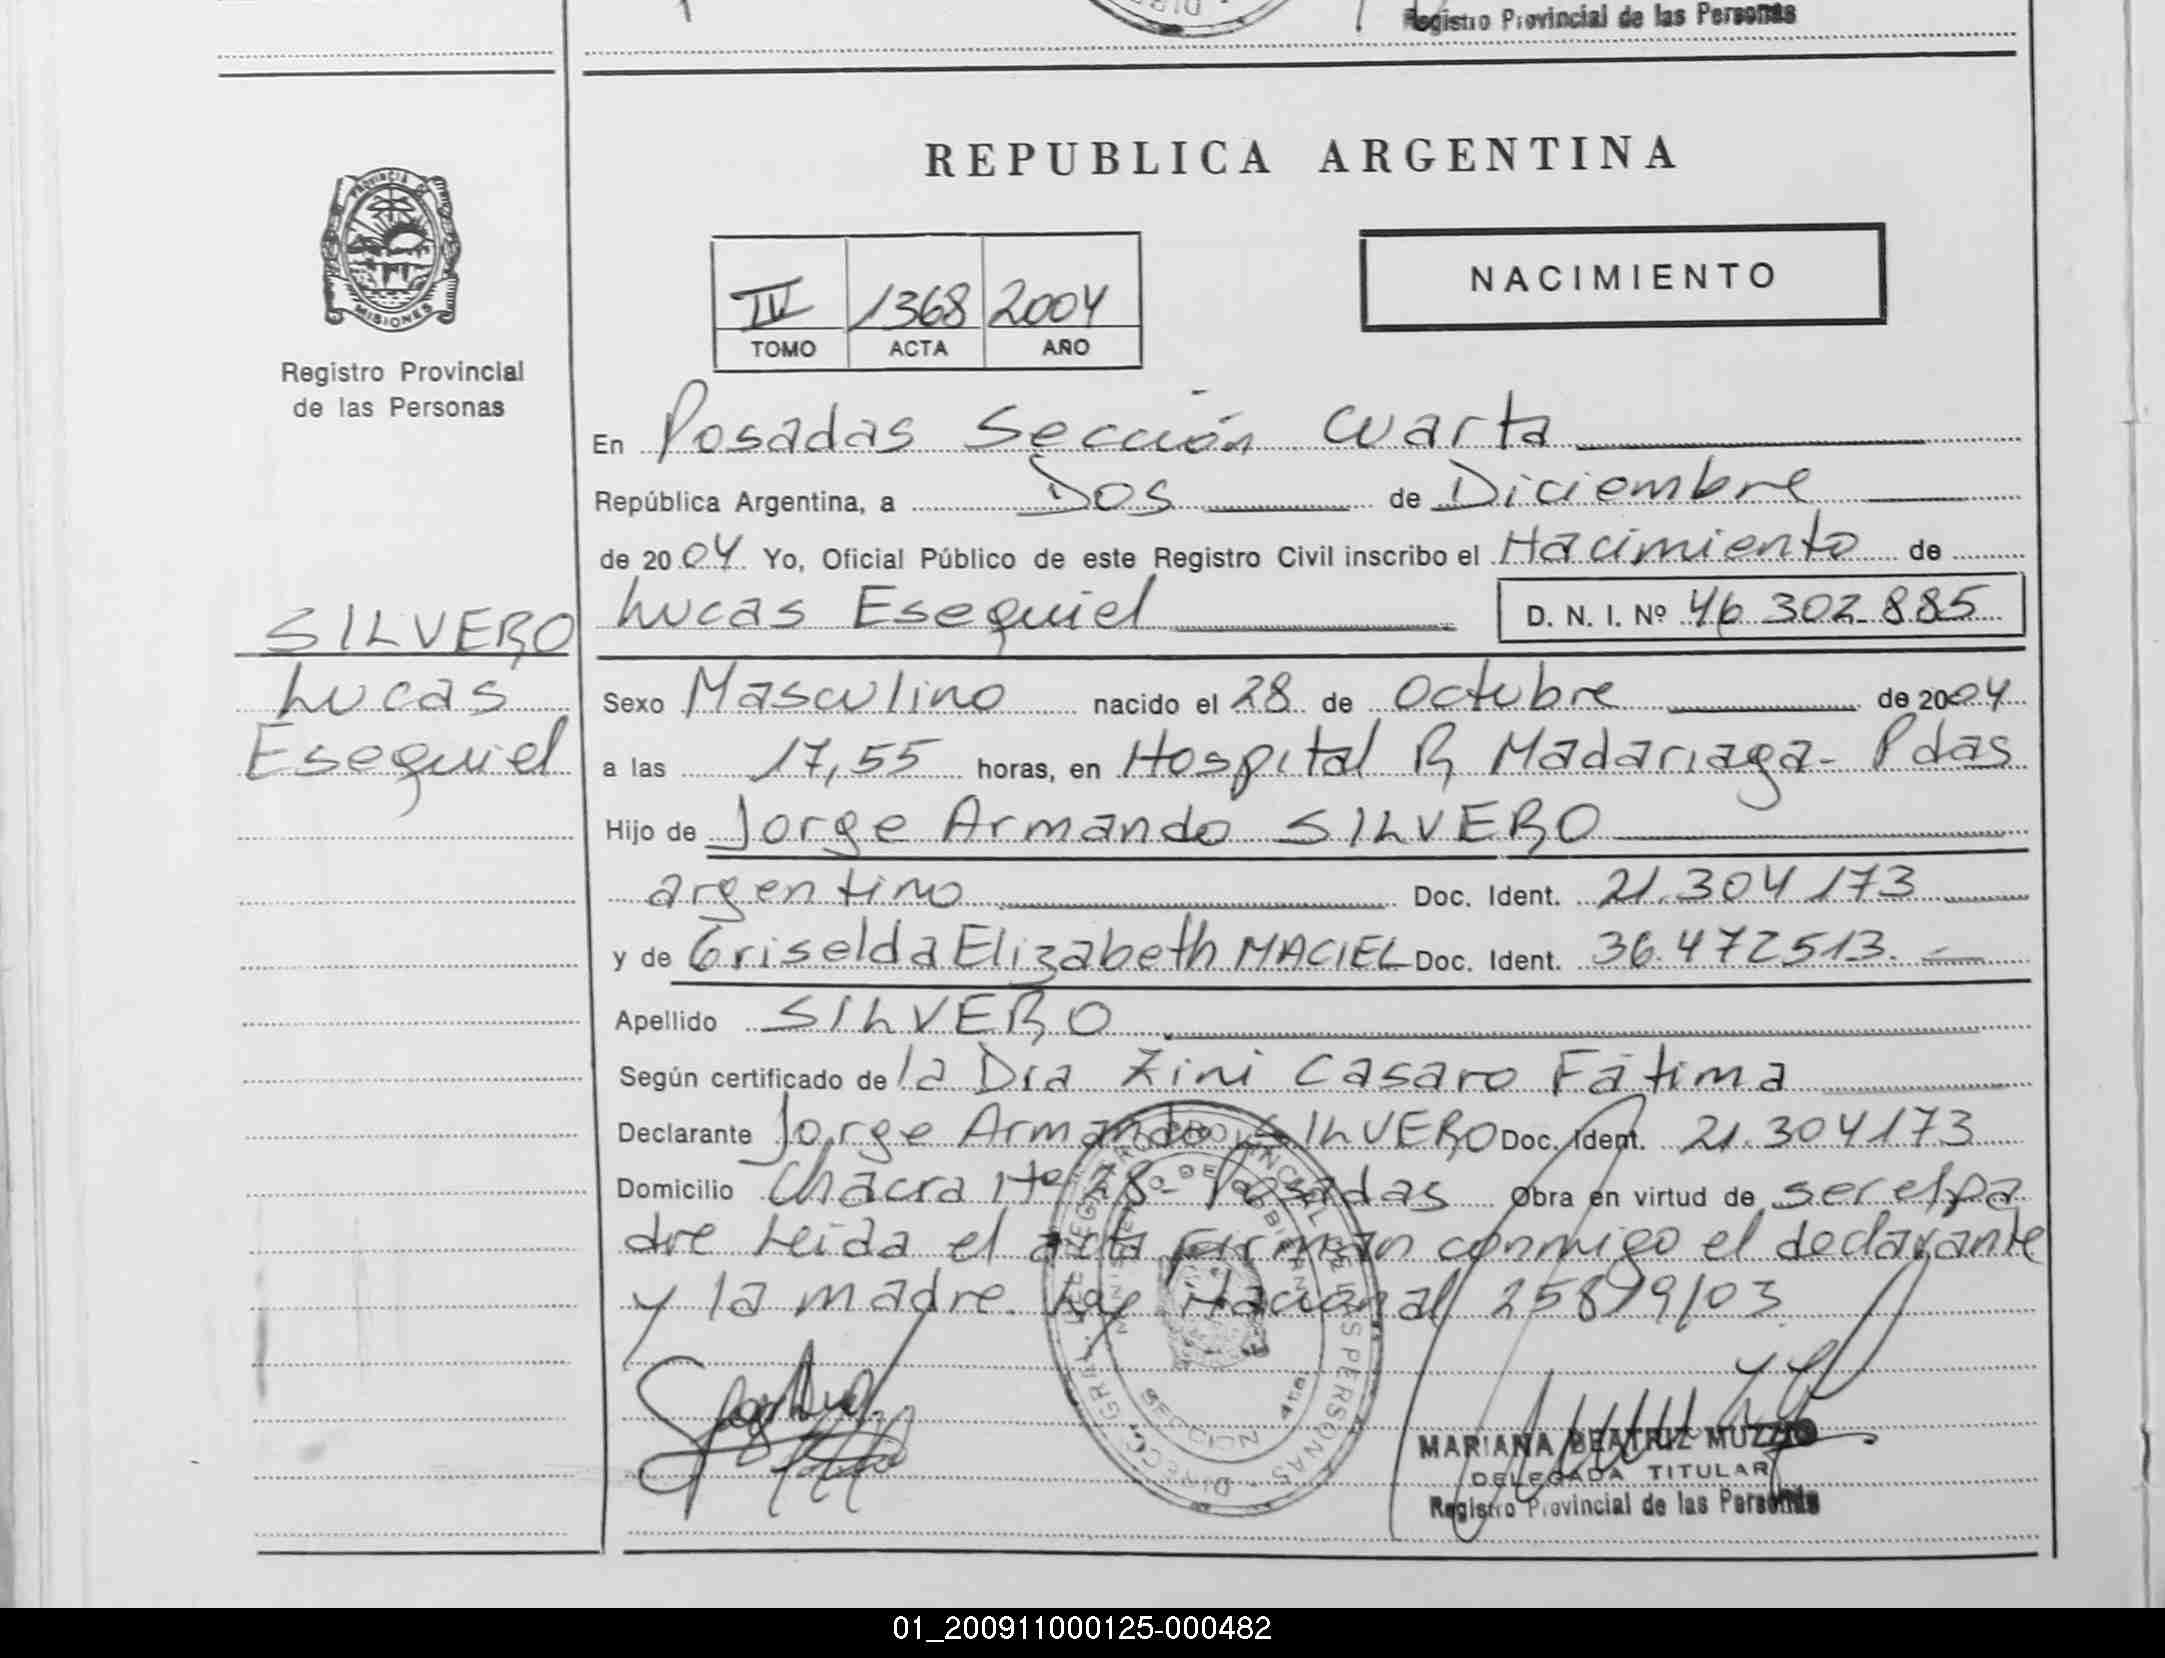 Registro Provincial de las Personas
REPUBLICA ARGENTINA
PROVINCIA DE
MISIONES
Registro Provincial
de las Personas
IV 1368 2004
TOMO ACTA AÑO
NACIMIENTO
En Posadas Sección Cuarta
República Argentina, a Dos de Diciembre
de 2004 Yo, Oficial Público de este Registro Civil inscribo el Nacimiento de
SILVERO
Lucas
Esequiel
Lucas Esequiel D. N. I. Nº 46 302 885
Sexo Masculino nacido el 28 de Octubre de 2004
a las 17,55 horas, en Hospital R Madariaga - Pdas
Hijo de Jorge Armando SILVERO
argentino Doc. Ident. 21.304 173
y de Griselda Elizabeth MACIEL Doc. Ident. 36.472513.
Apellido SILVERO
Según certificado de la Dra Zini Casaro Fátima
Declarante Jorge Armando SILVERO Doc. Ident. 21.304173
Domicilio Chacra Nº 28- Posadas Obra en virtud de ser el pa
dre Leida el acta firman conmigo el declarante
y la madre. Ley Nacional 25819/03
DIREC. GRAL. DE REGISTRO PROVINCIAL DE LAS PERSONAS
MINISTERIO DE GOBIERNO
SECCION 4ta
MARIANA BEATRIZ MUZZIO
DELEGADA TITULAR
Registro Provincial de las Personas
01_200911000125-000482